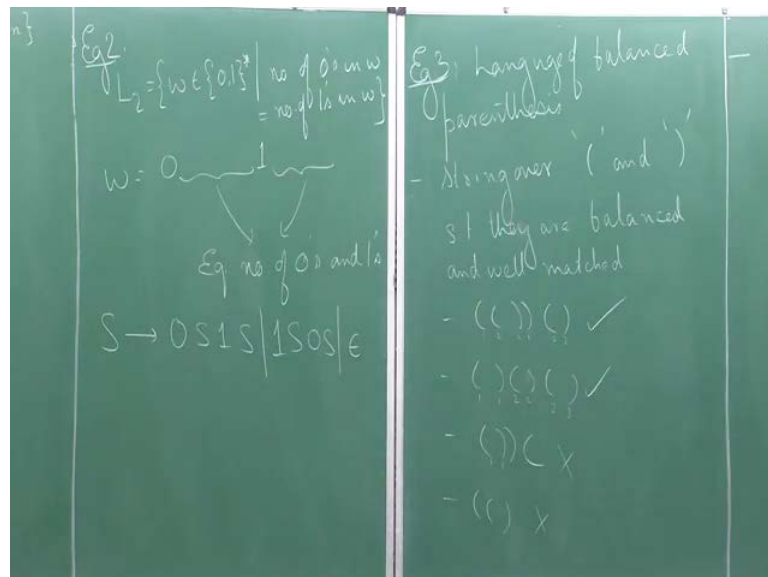 n}
Eg2:
L₂ = {w ∈ {0,1}* | no of 0's in w
= no. of 1's in w}
w = 0 1
Eq. no. of 0's and 1's
S → 0S1S | 1S0S | ε
Eg3: Language of balanced
parenthesis
- String over '(' and ')'
st they are balanced
and well matched
- (())() ✓
- ()()() ✓
- ())( X
- (() X